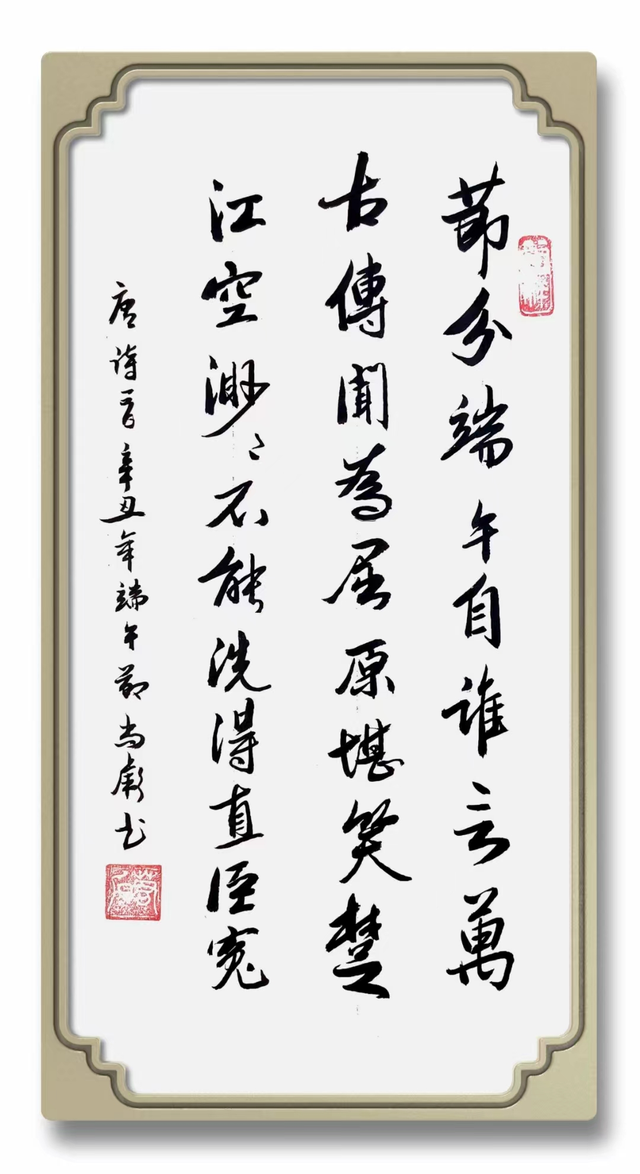 節分端午自誰言萬
古傳聞為屈原堪笑楚
江空渺〻不能洗得直臣冤
唐詩一首辛丑年端午節尚书